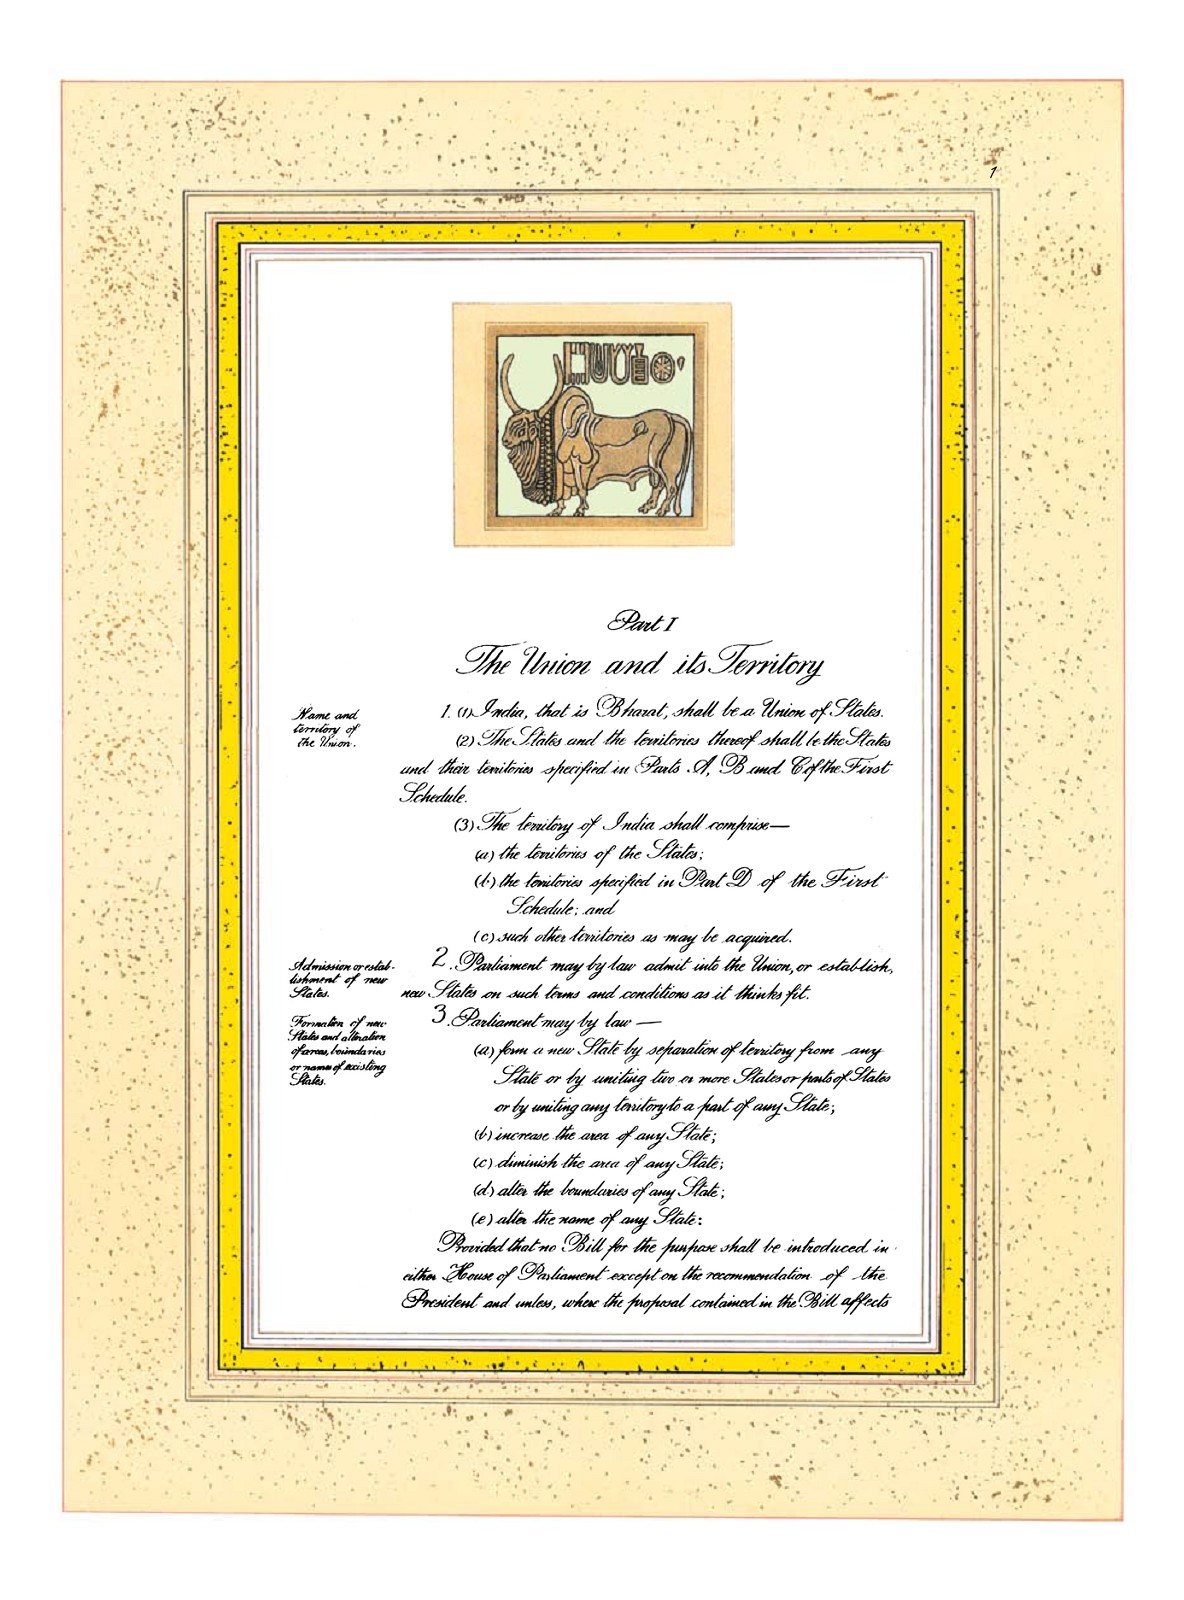 1
Part I
The Union and its Territory
Name and
territory of
the Union.
1. (1) India, that is Bharat, shall be a Union of States.
(2) The States and the territories thereof shall be the States
and their territories specified in Parts A, B and C of the First
Schedule.
(3) The territory of India shall comprise—
(a) the territories of the States;
(b) the territories specified in Part D of the First
Schedule; and
(c) such other territories as may be acquired.
Admission or estab-
lishment of new
States.
2. Parliament may by law admit into the Union, or establish,
new States on such terms and conditions as it thinks fit.
Formation of new
States and alteration
of areas, boundaries
or names of existing
States.
3. Parliament may by law —
(a) form a new State by separation of territory from any
State or by uniting two or more States or parts of States
or by uniting any territory to a part of any State;
(b) increase the area of any State;
(c) diminish the area of any State;
(d) alter the boundaries of any State;
(e) alter the name of any State:
Provided that no Bill for the purpose shall be introduced in
either House of Parliament except on the recommendation of the
President and unless, where the proposal contained in the Bill affects